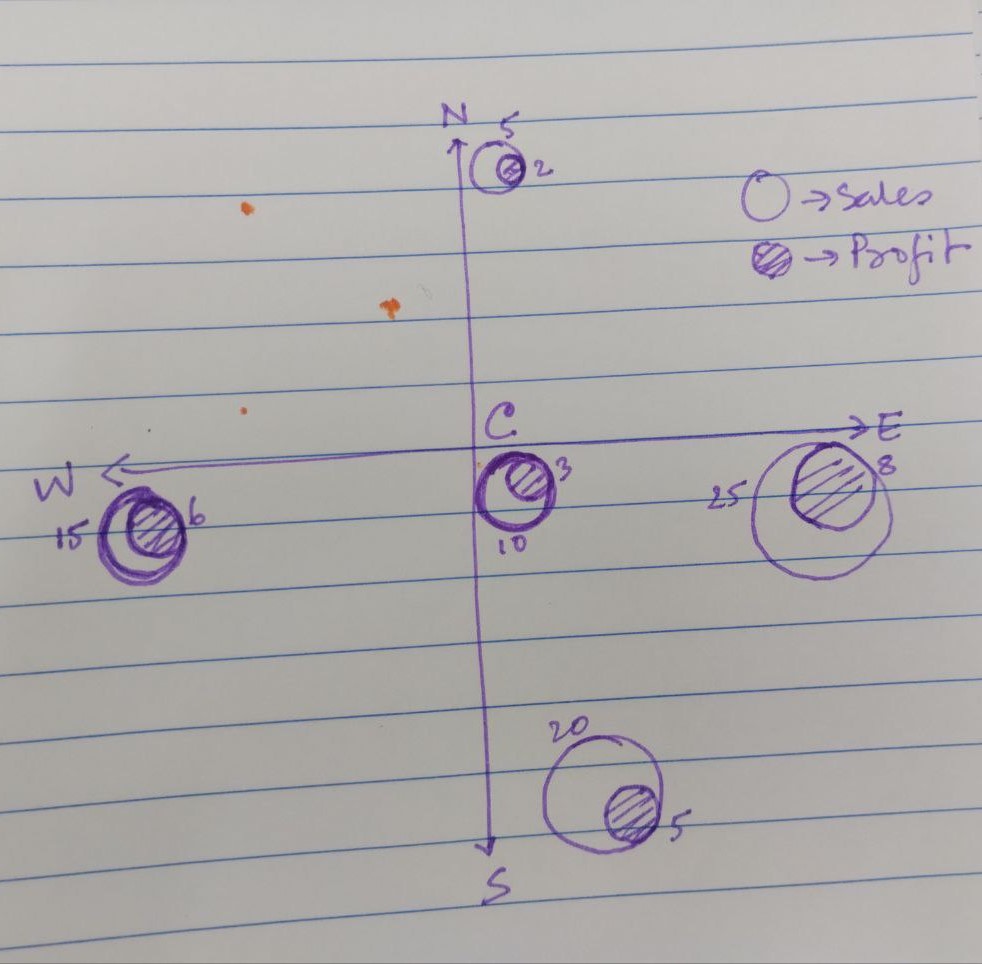 N
5
2
→ Sales
→ Profit
C
E
W
3
8
25
15
6
10
20
5
S